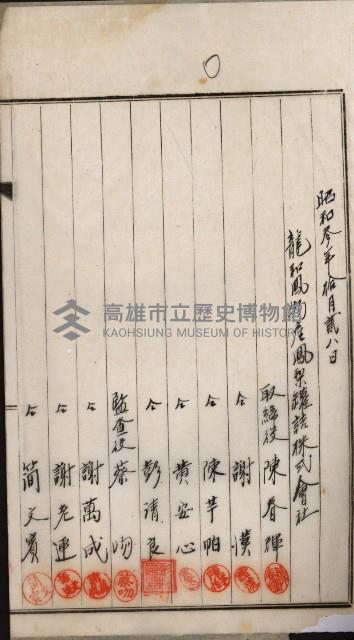 昭和叁年拾月貳八日
龍和鳳物產鳳梨罐詰株式會社
取締役 陳春輝
仝 謝樸
仝 陳芋帕
仝 黃安心
仝 彭清良
監查役 蔡吻
仝 謝萬成
仝 謝老連
仝 简文賓
高雄市立歷史博物館
KAOHSIUNG MUSEUM OF HISTORY